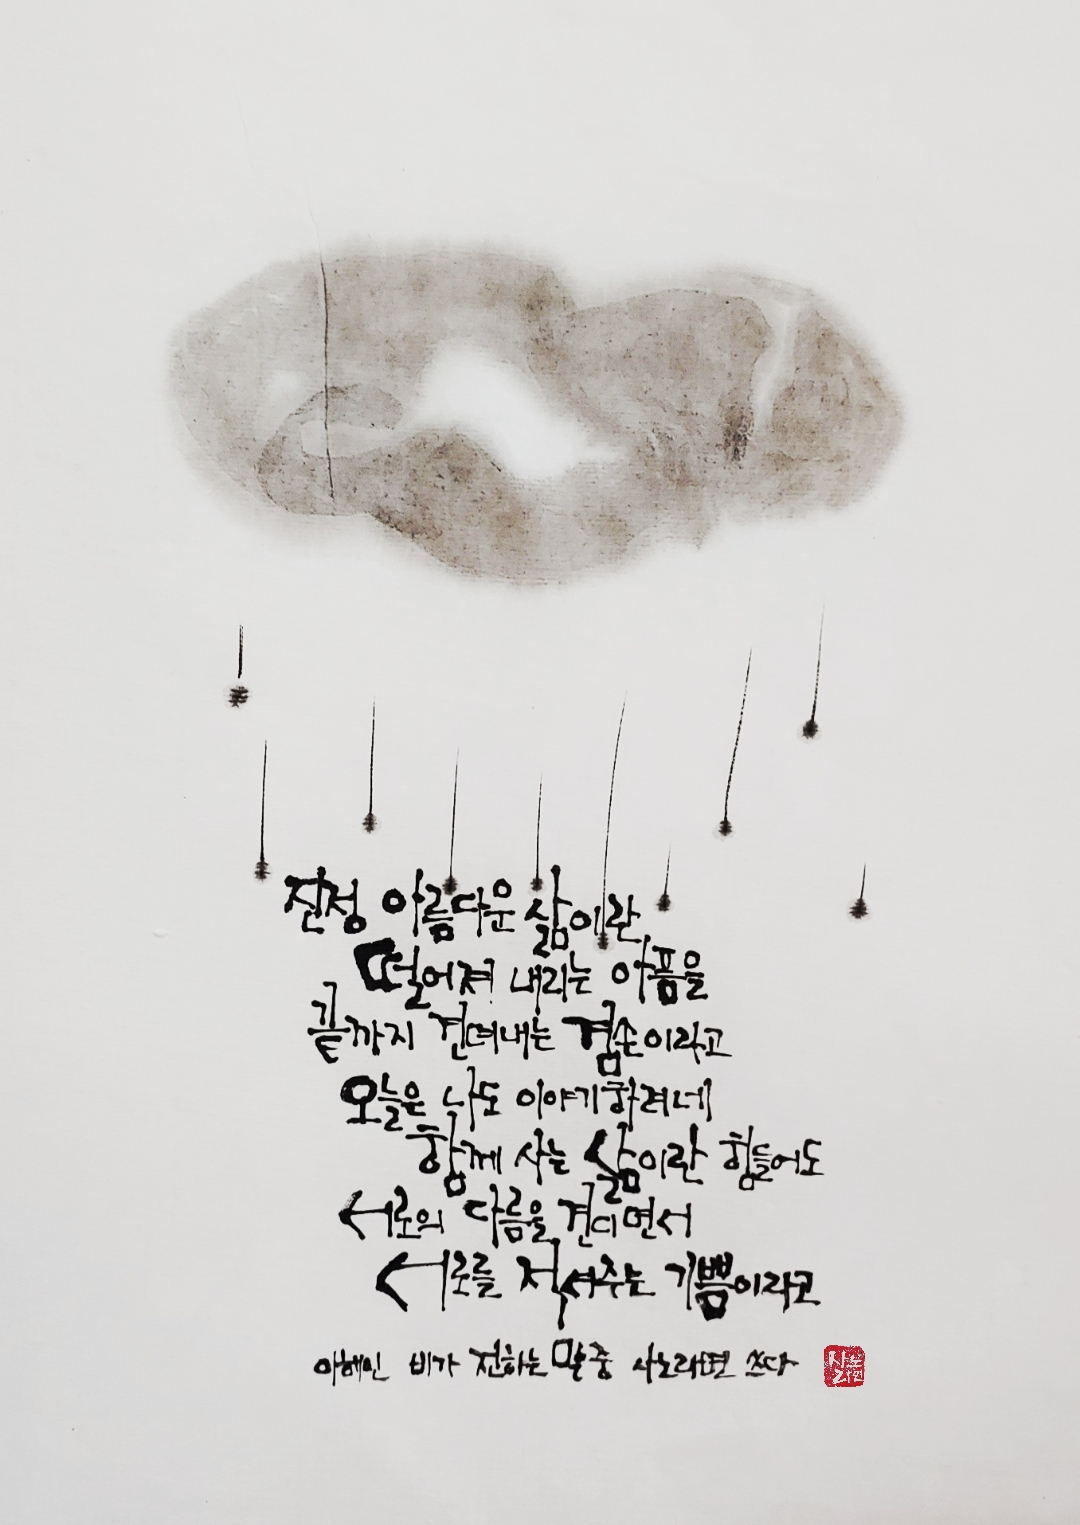 진정 아름다운 삶이란
떨어져 내리는 아픔을
끝까지 견뎌내는 겸손이라고
오늘은 나도 이야기하려네
함께 사는 삶이란 힘들어도
서로의 다름을 견디면서
서로를 적셔주는 기쁨이라고
이해인 비가 전하는 말 중 사노라면 쓰다
사노라면